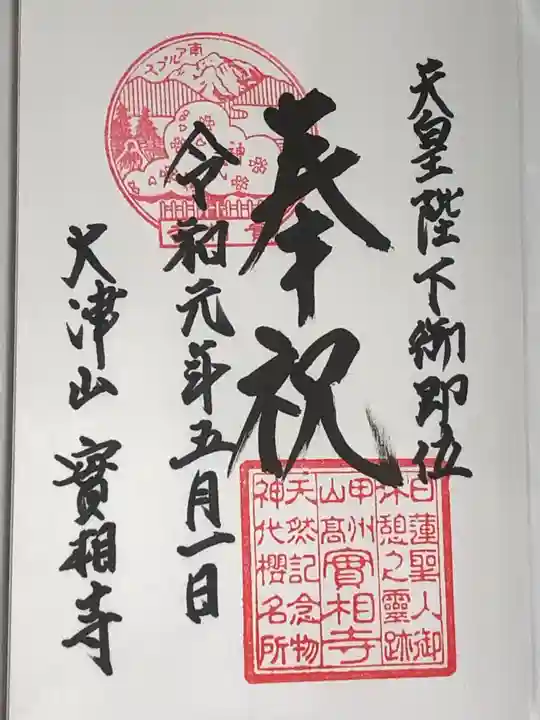 天皇陛下御即位
奉祝
令和元年五月一日
大津山 實相寺
南アルプス
神
日蓮聖人御
休憩之靈跡
甲州
山高
實相寺
天然記念物
神代櫻名所